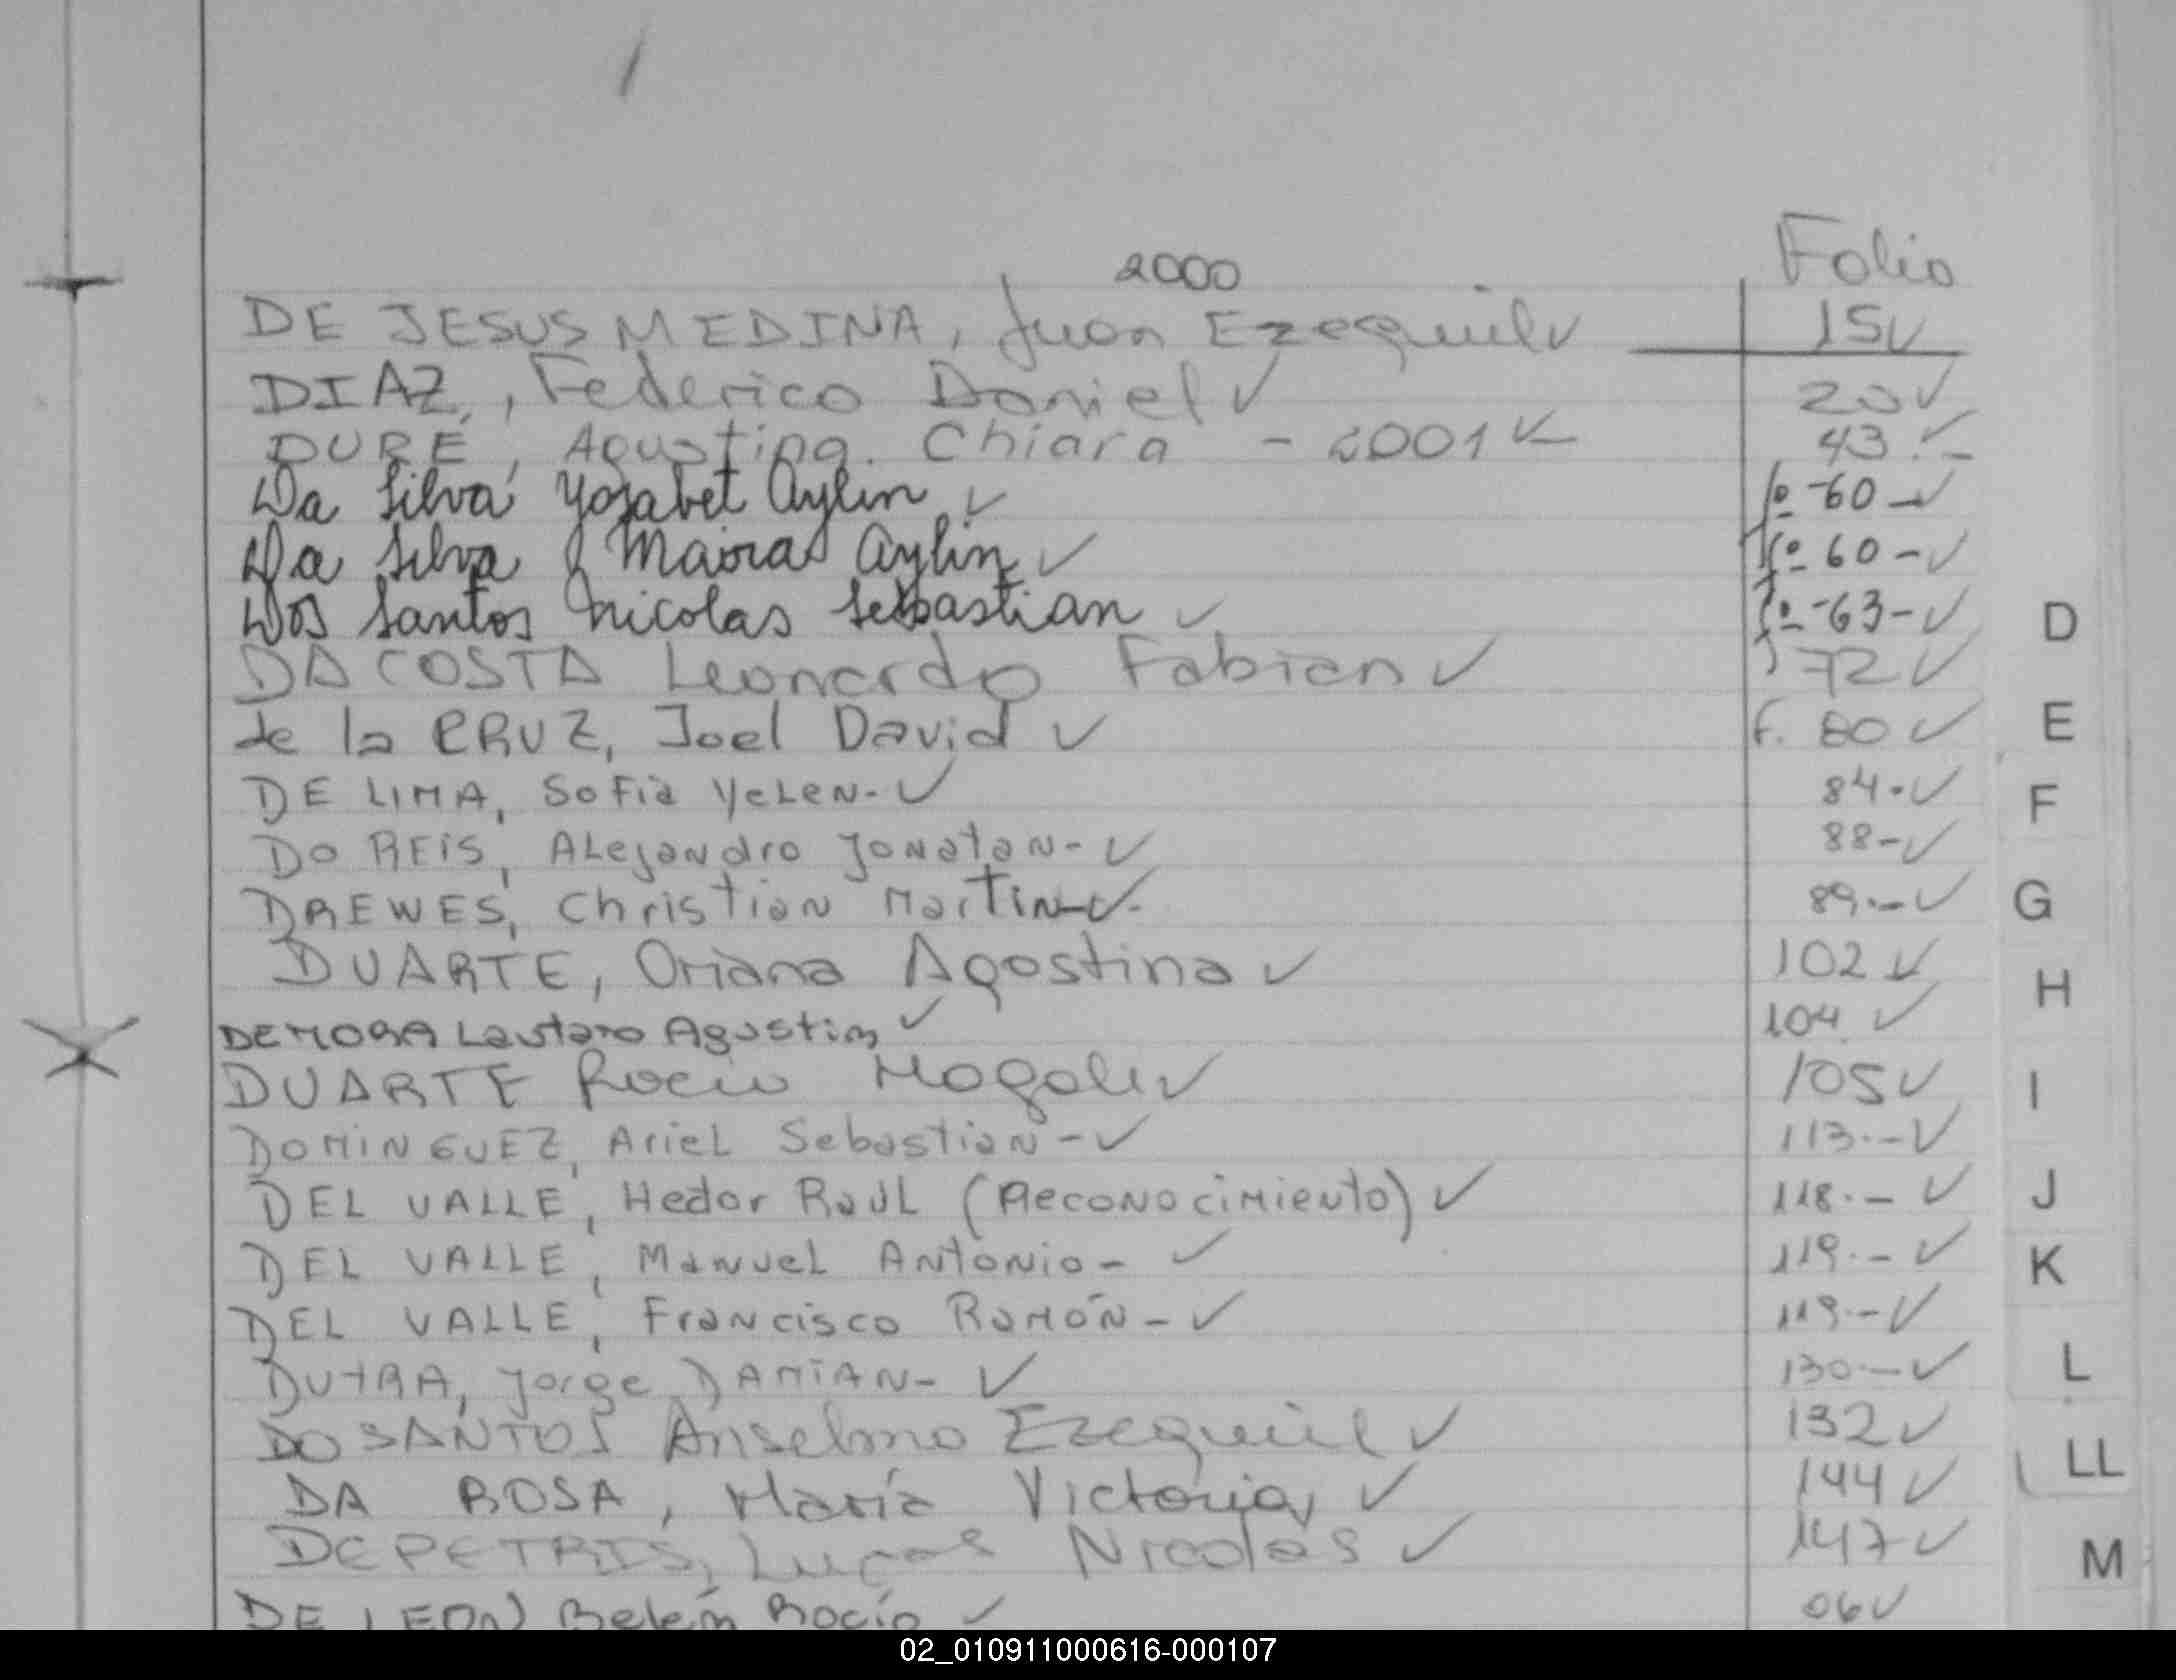 2000
Folio
DE JESUS MEDINA, Juan Ezequiel ✓ 15 ✓
DIAZ, Federico Daniel ✓ 20 ✓
DURÉ, Agustina. Chiara - 2001 ✓ 43 ✓
Da Silva Yosabet Aylin ✓ fº -60 - ✓
Da Silva Maira Aylin ✓ fº 60 - ✓
Dos Santos Nicolas Sebastian ✓ fº -63- ✓
DA COSTA Leonardo Fabian ✓ f 72 ✓
de la CRUZ, Joel David ✓ f. 80 ✓
DE LIMA, Sofia Yelen- ✓ 84. ✓
DO REIS, Alejandro Jonatan- ✓ 88- ✓
DREWES, Christian Martin- ✓ 89.- ✓
DUARTE, Oriana Agostina ✓ 102 ✓
DE MORA Lautaro Agustin ✓ 104 ✓
DUARTE Rocio Magali ✓ 105 ✓
DOMINGUEZ, Ariel Sebastian- ✓ 113.- ✓
DEL VALLE, Hector Raúl (Reconocimiento) ✓ 118.- ✓
DEL VALLE, Manuel Antonio- ✓ 119.- ✓
DEL VALLE, Francisco Ramón- ✓ 119.- ✓
DUTRA, Jorge DAMIAN- ✓ 130.- ✓
DO SANTOS Anselmo Ezequiel ✓ 132 ✓
DA ROSA, María Victoria, ✓ 144 ✓
DEPETRIS, Lucas Nicolas ✓ 147 ✓
DE LEON Belén Rocío ✓ 06 ✓
D
E
F
G
H
I
J
K
L
LL
M
02_010911000616-000107